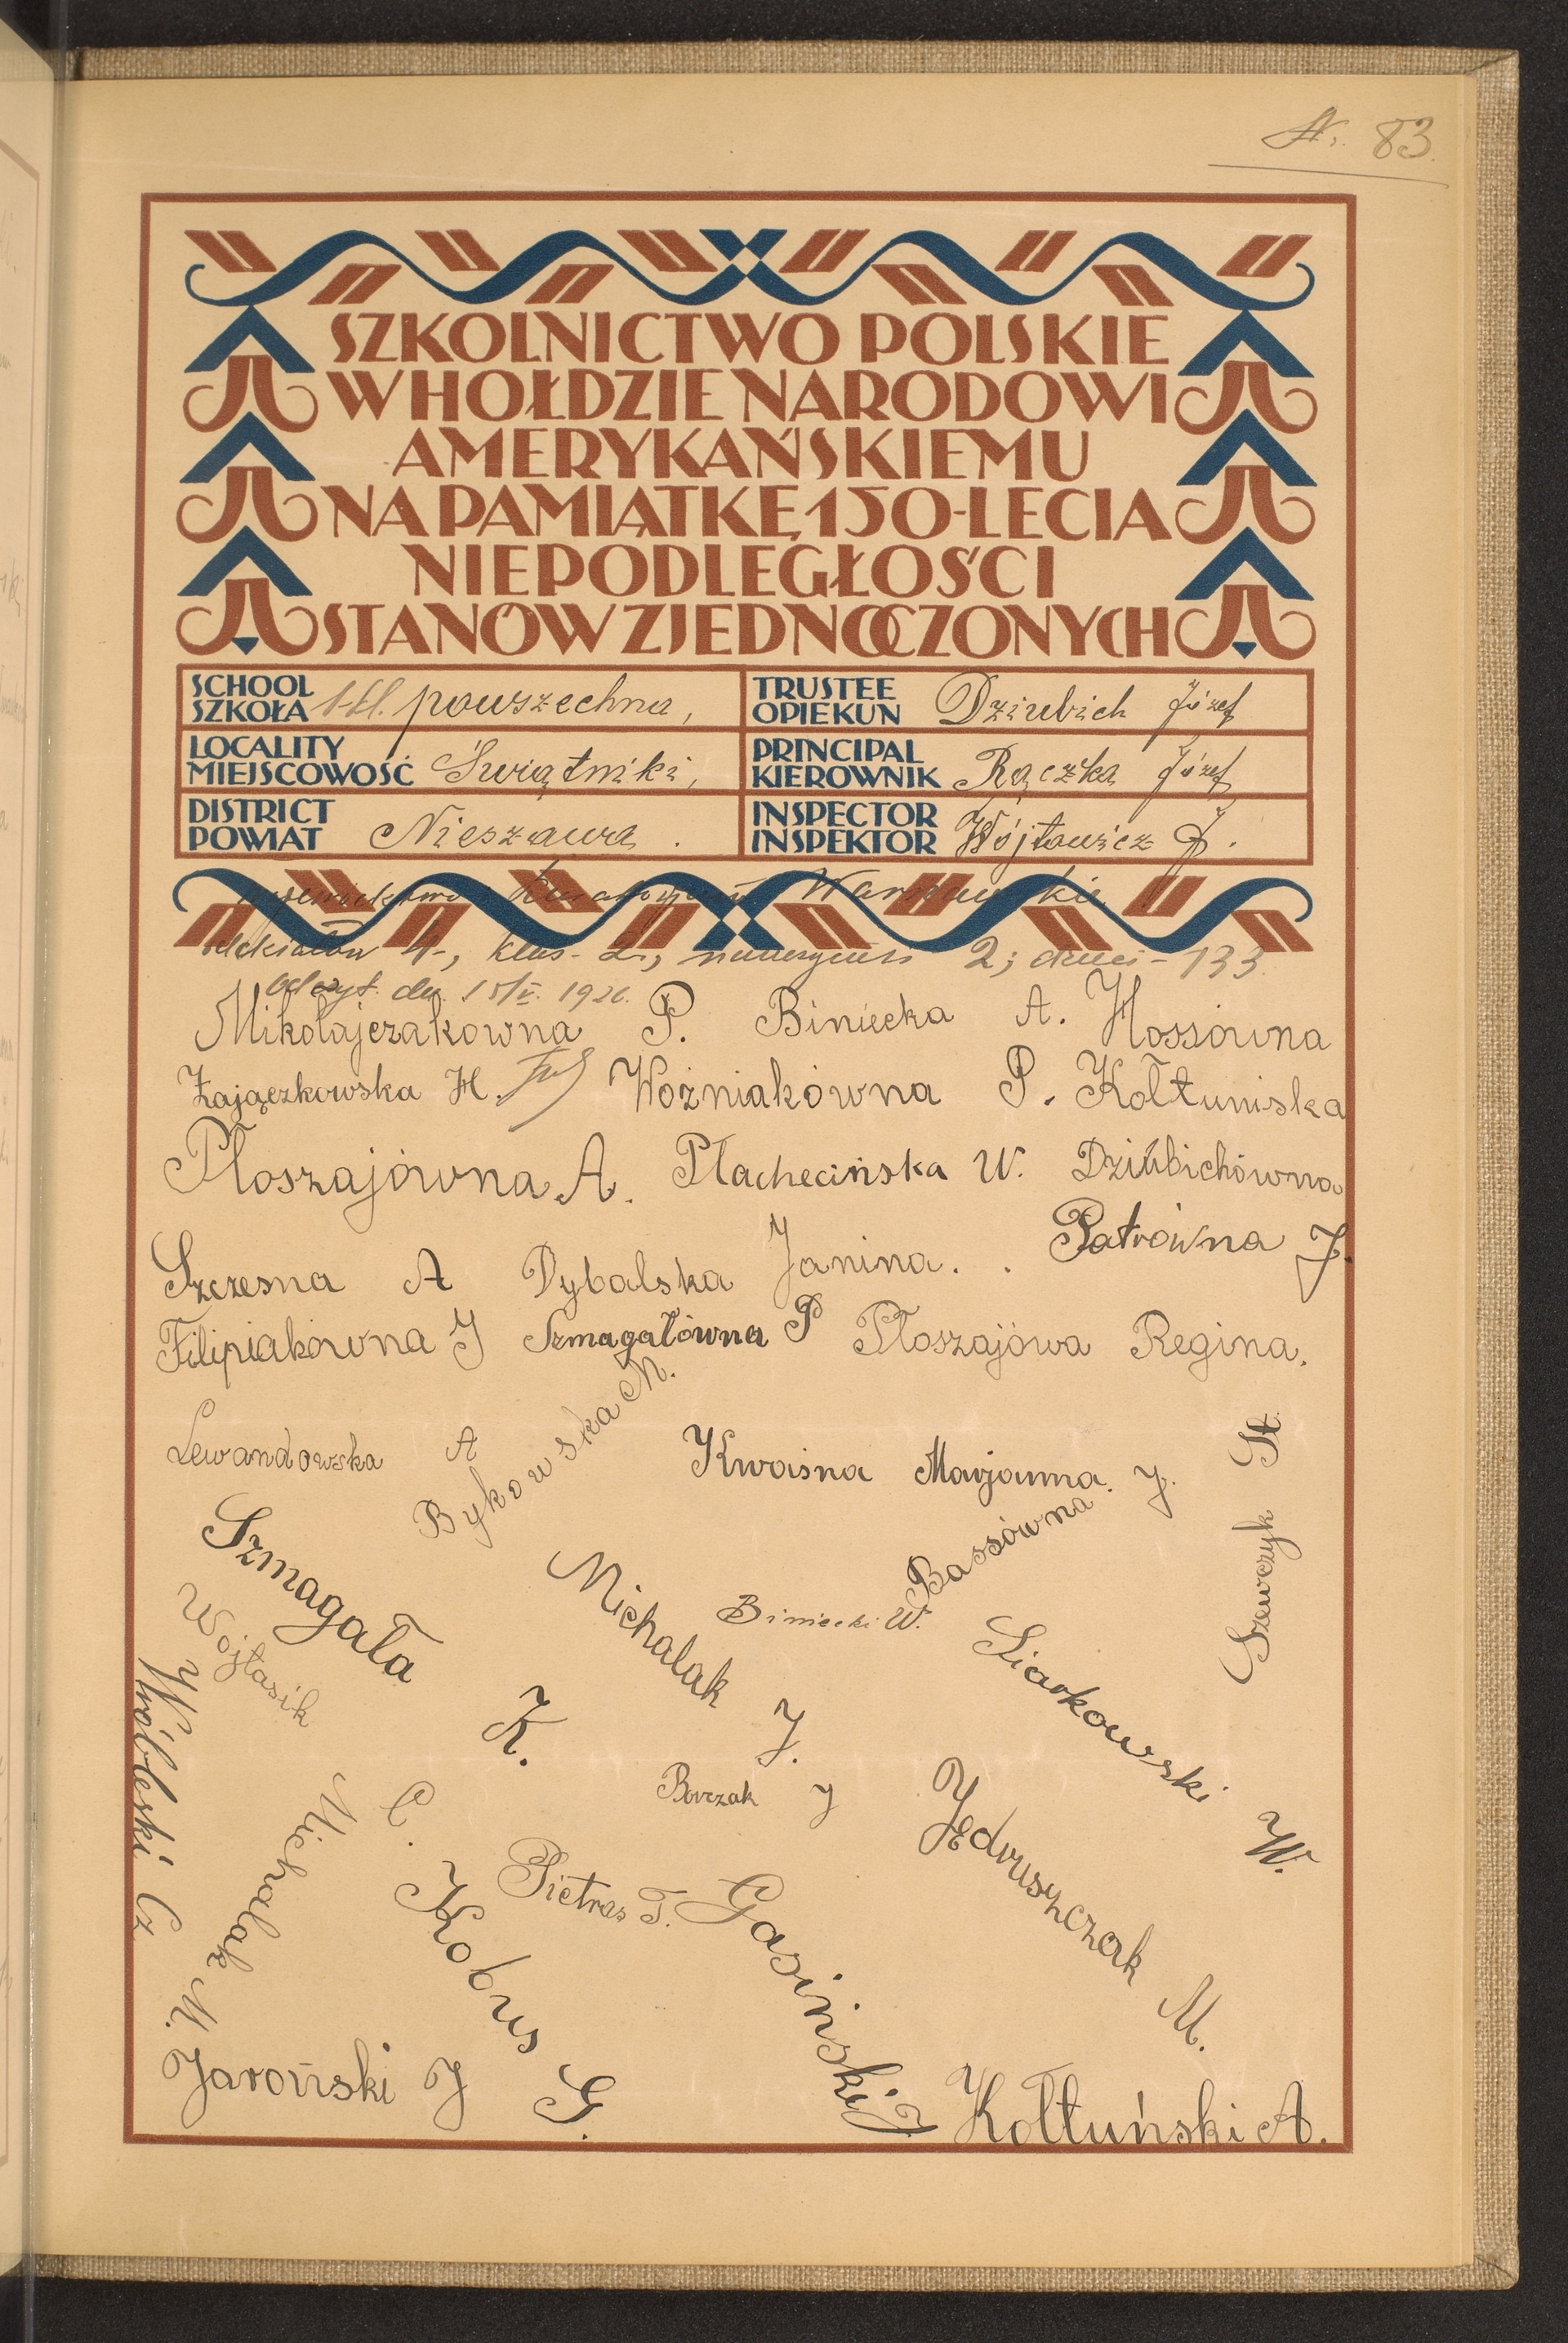 Nr. 83.
SZKOLNICTWO POLSKIE
W HOŁDZIE NARODOWI
AMERYKAŃSKIEMU
NA PAMIĄTKĘ 150-LECIA
NIEPODLEGŁOŚCI
STANÓW ZJEDNOCZONYCH
SCHOOL
SZKOŁA powszechna,
TRUSTEE
OPIEKUN Dziubich Józef
LOCALITY
MIEJSCOWOŚĆ Świątniki,
PRINCIPAL
KIEROWNIK Rączka Józef
DISTRICT
POWIAT Nieszawa.
INSPECTOR
INSPEKTOR Wójtowicz J.
Warszawskie
4, klas - 2, 2; dzieci - 133.
odczyt. dn. 15/V. 1926.
Mikołajczakowna P. Biniecka A. Hossówna
Zajączkowska H. Woźniakówna P. Kołtuniska
Płoszajówna A. Płachecińska W. Dziubichówna
Szczesna A Dybalska Janina. Patrówna J.
Filipiakówna J Szmagałówna P Płoszajówa Regina.
Lewandowska A Bykowska M. Kwaśna Marjanna. J.
Bassówna
Szewczyk St.
Szmagała K.
Michalak J.
Biniecki W.
Siarkowski W.
Wojtasik C.
Wróbleski Cz
Borczak J
Michalak M.
Kobus G.
Pietras T.
Gasiński J
Jędruszczak M.
Jaroński J
Kołtuński A.